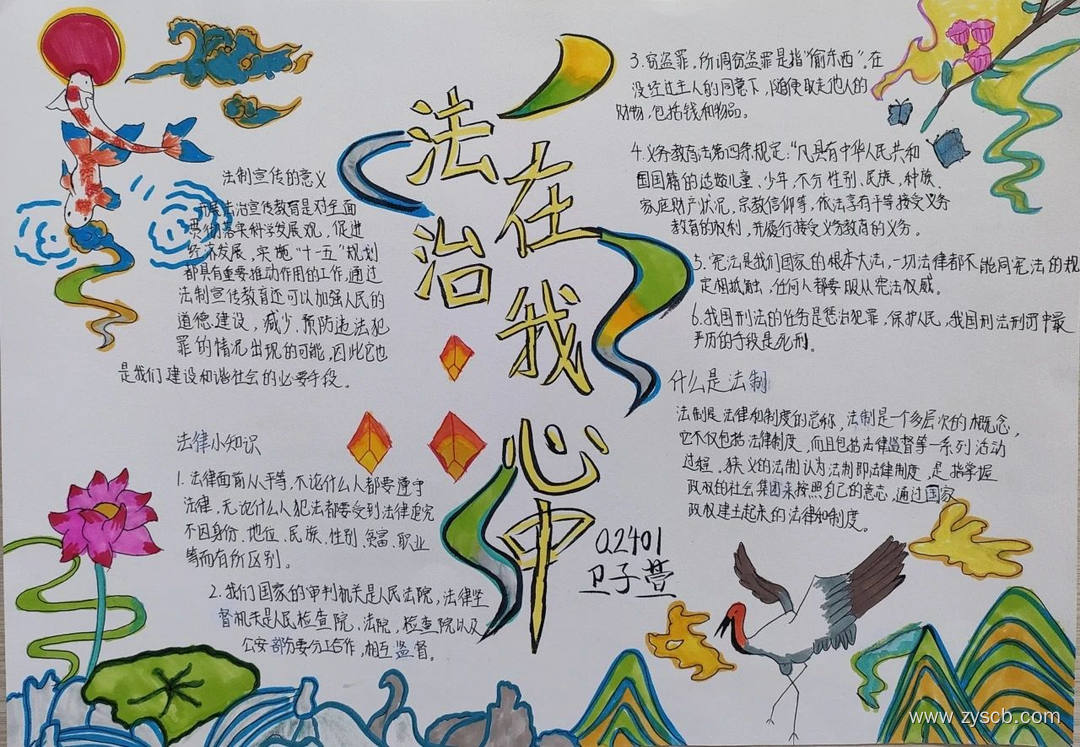 法治
在我心中
Q2401
卫子萱
法制宣传的意义
开展法治宣传教育是对全面
贯彻落实科学发展观,促进
经济发展,实施“十一五”规划
都具有重要推动作用的工作,通过
法制宣传教育还可以加强人民的
道德建设,减少、预防违法犯
罪的情况出现的可能,因此它也
是我们建设和谐社会的必要手段。
法律小知识
1.法律面前人人平等,不论什么人都要遵守
法律,无论什么人犯法都要受到法律追究
不因身份、地位、民族、性别、贫富、职业
等而有所区别。
2.我们国家的审判机关是人民法院,法律监
督机关是人民检查院、法院,检查院以及
公安部份要分工合作,相互监督。
3.窃盗罪,所谓窃盗罪是指“偷东西”。在
没经过主人的同意下,随便取走他人的
财物,包括钱和物品。
4.义务教育法第四条规定:“凡具有中华人民共和
国国籍的适龄儿童、少年,不分性别、民族、种族、
家庭财产状况、宗教信仰等,依法享有平等接受义务
教育的权利,并履行接受义务教育的义务。
5.宪法是我们国家的根本大法,一切法律都不能同宪法的规
定相抵触,任何人都要服从宪法权威。
6.我国刑法的任务是惩治犯罪,保护人民,我国刑法刑罚中最
严厉的手段是死刑。
什么是法制
法制是法律和制度的总称,法制是一个多层次的概念,
它不仅包括法律制度,而且包括法律监督等一系列活动
过程。狭义的法制认为法制即法律制度,是指掌握
政权的社会集团来按照自己的意志,通过国家
政权建立起来的法律和制度。
www.zyscb.com